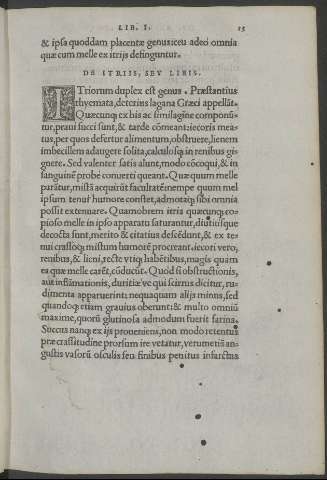 LIB. I. 15
& ipsa quoddam placentæ genus: ceu adeo omnia
quæ cum melle ex itrijs definguntur.
DE ITRIIS, SEV LIBIS.
ITriorum duplex est genus. Præstantius
rhyemata, deterius lagana Græci appellãt.
Quæcunq; ex his ac similagine componũ-
tur, praui succi sunt, & tarde cõmeant: iecoris mea-
tus, per quos defertur alimentum, obstruere, lienem
imbecillem adaugere solita, calculosq; in renibus gi-
gnere. Sed valenter satis alunt, modo cõcoqui, & in
sanguinẽ probe conuerti queant. Quæ quum melle
parãtur, mistã acquirũt facultatẽ: nempe quum mel
ipsum tenui humore constet, admotaq; sibi omnia
possit extenuare. Quamobrem itria quæcunq; co-
pioso melle in ipso apparatu saturantur, diutiusque
decocta sunt, merito & citatius descẽdunt, & ex te-
nui crassoq; mistum humorẽ procreant: iecori vero,
renibus, & lieni, recte vtiq; habẽtibus, magis quam
ea quæ melle carẽt, cõducũt. Quod si obstructionis,
aut inflãmationis, duritiæ ve qui scirrus dicitur, ru-
dimenta apparuerint: nequaquam alijs minus, sed
quandoq; etiam grauius oberunt: & multo omniũ
maxime, quorũ glutinosa admodum fuerit farina.
Succus nanq; ex ijs proueniens, non modo retentus
præ crassitudine prorsum ire vetatur, verumetiã an-
gustis vasorũ osculis seu finibus penitus infarctus